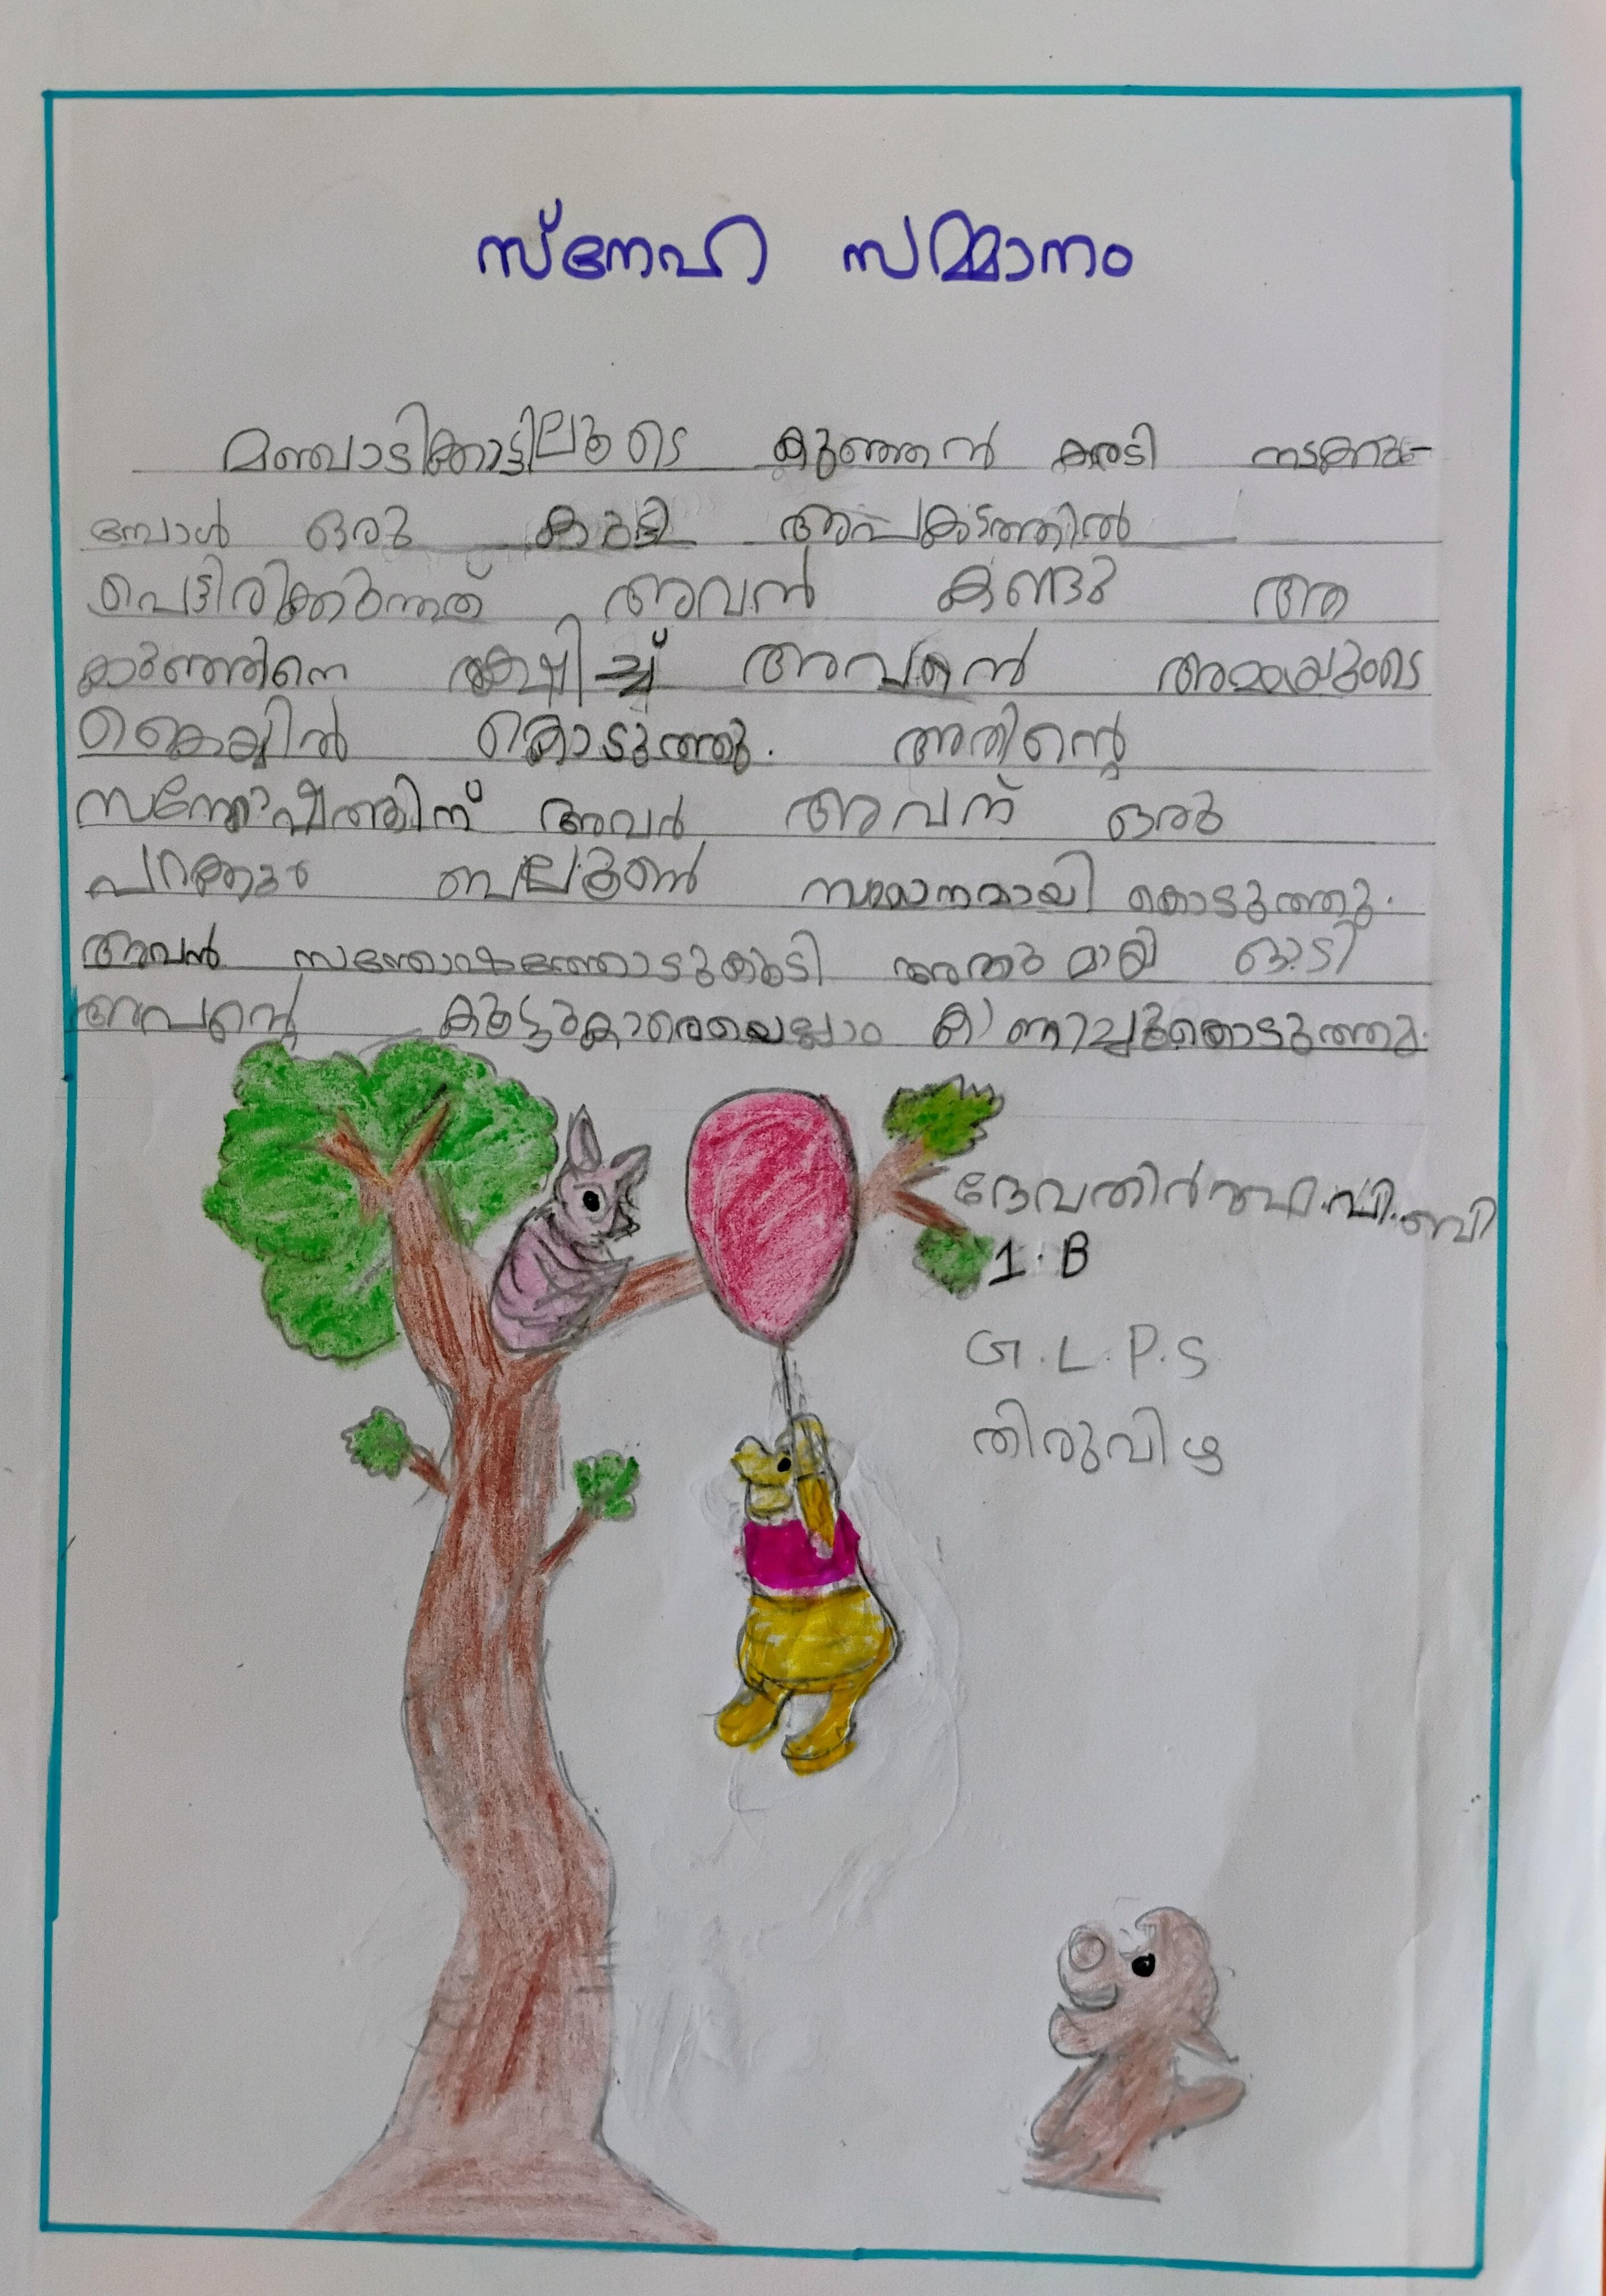 സ്നേഹ സമ്മാനം
മഞ്ചാടിക്കാട്ടിലൂടെ കുഞ്ഞൻ കരടി നടക്കു-
മ്പോൾ ഒരു അപകടത്തിൽ
പെട്ടിരിക്കുന്നത് അവൻ കണ്ടു ആ
കുഞ്ഞിനെ രക്ഷിച്ച് അവൻ അമ്മയുടെ
കൈയ്യിൽ കൊടുത്തു. അതിന്റെ
സന്തോഷത്തിന് അവർ അവന് ഒരു
പറക്കും ബലൂൺ സമ്മാനമായി കൊടുത്തു.
അവൻ സന്തോഷത്തോടുകൂടി അതുമായി ഓടി
അവന്റെ കൂട്ടുകാരെയെല്ലാം കാണിച്ചുകൊടുത്തു.
1. B
G.L.P.S
തിരുവിഴ